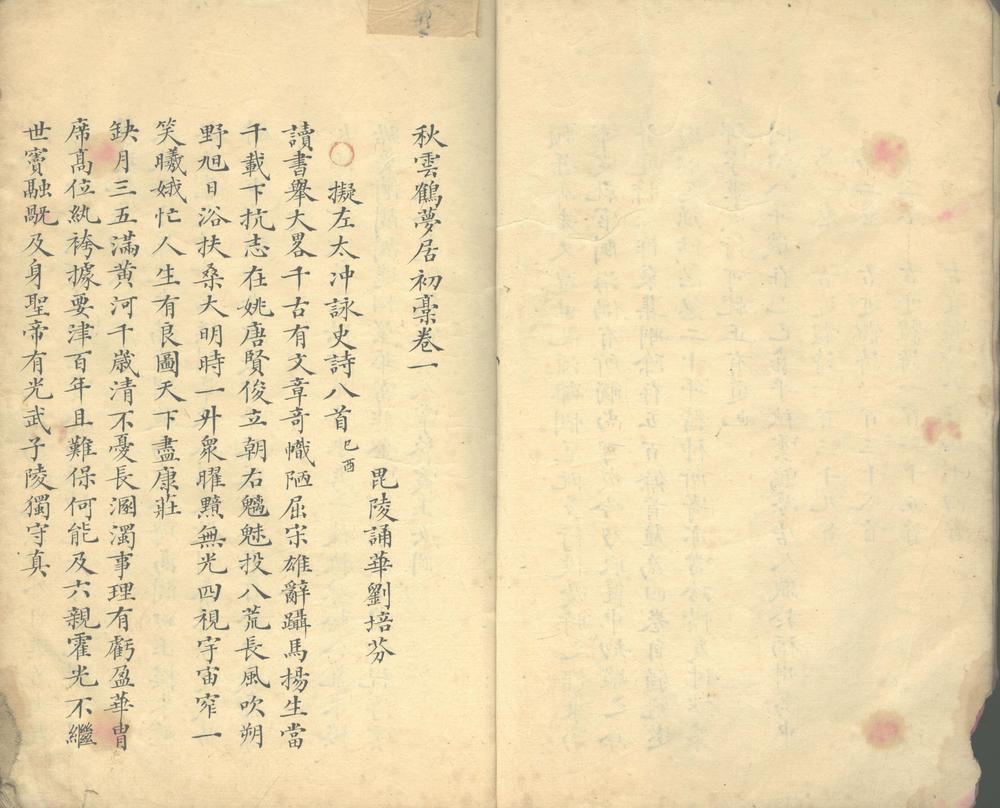 秋雲鶴夢居初稾卷一
毘陵誦華劉培芬
擬左太冲詠史詩八首己酉
讀書舉大畧千古有文章奇幟陋屈宋雄辭躡馬揚生當
千載下抗志在姚唐賢俊立朝右魑魅投八荒長風吹朔
野旭日浴扶桑大明時一升衆曜黯無光四視宇宙窄一
笑曦娥忙人生有良圖天下盡康莊
缺月三五滿黄河千歲清不憂長溷濁事理有虧盈華胄
席高位紈袴據要津百年且難保何能及六親霍光不繼
世竇融戬及身聖帝有光武子陵獨守真